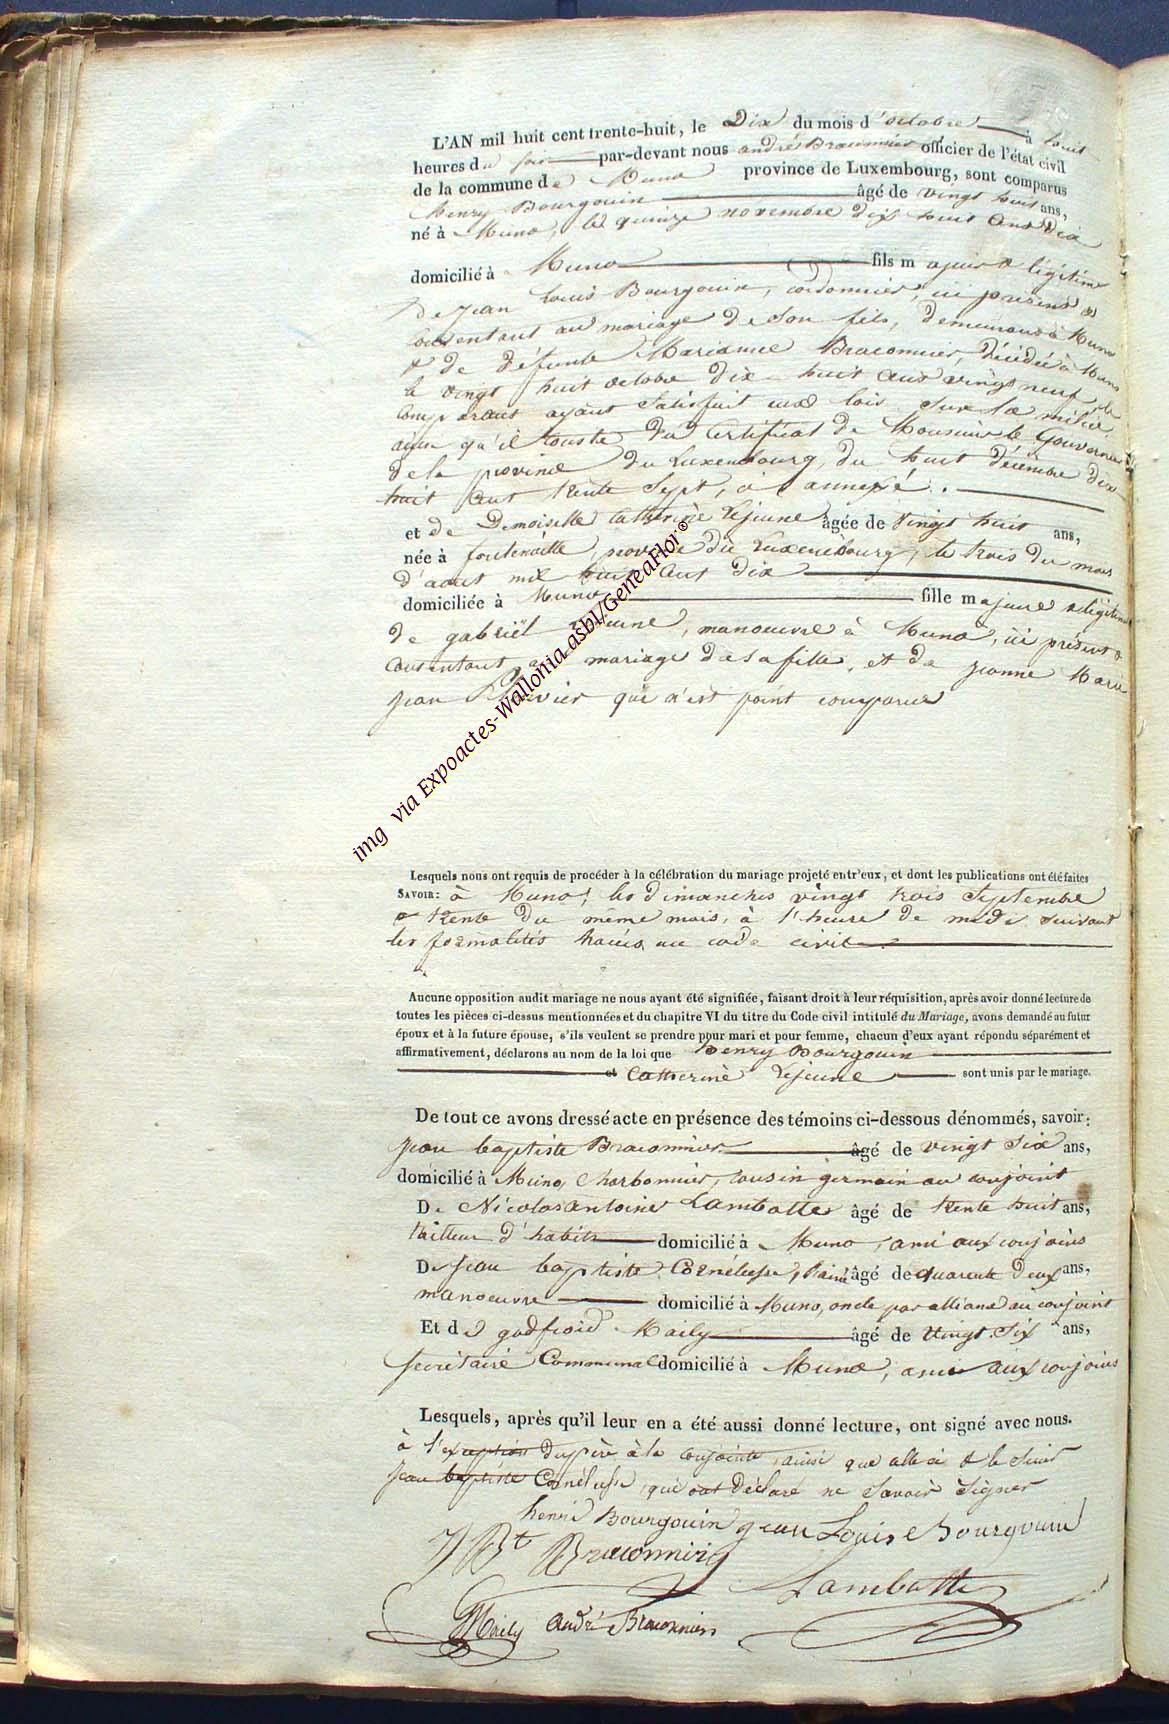 L'AN mil huit cent trente-huit, le Dix du mois d'octobre à huit
heures du soir par-devant nous andré Braconnier officier de l'état civil
de la commune de Muno province de Luxembourg, sont comparus
Henry Bourgouin âgé de vingt huit ans,
né à Muno, le quinze novembre dix huit cens dix
domicilié à Muno fils majeur & légitime
De jean Louis Bourgouin, cordonnier, ici présent &
consentant au mariage de son fils, demeurant à Muno
& de défunte Marianne Braconnier, décédée à Muno
le vingt huit octobre dix-huit cent vingt neuf, le
comparant ayant satisfait aux lois sur la milice
ainsi qu'il conste du certificat de Monsieur le Gouverneur
de la province du Luxembourg, du huit décembre dix
huit cent trente sept, ci annexé.
et de Demoiselle Catherine Lejeune âgée de vingt huit ans,
née à fontenoille, province du Luxembourg, le trois du mois
d'aout mil huit cent dix
domiciliée à Muno fille majeure & légitime
de gabriël Lejeune, manoeuvre à Muno, ici présent &
consentant au mariage de sa fille, et de jeanne Marie
jean qui n'est point comparue
Lesquels nous ont requis de procéder à la célébration du mariage projeté entr'eux, et dont les publications ont été faites
SAVOIR: à Muno, les dimanches vingt trois Septembre
& trente du même mois, à l'heure de midi suivant
les formalités tracées au code civil
Aucune opposition audit mariage ne nous ayant été signifiée, faisant droit à leur réquisition, après avoir donné lecture de
toutes les pièces ci-dessus mentionnées et du chapitre VI du titre du Code civil intitulé du Mariage, avons demandé au futur
époux et à la future épouse, s'ils veulent se prendre pour mari et pour femme, chacun d'eux ayant répondu séparément et
affirmativement, déclarons au nom de la loi que Henry Bourgouin
et Catherine Lejeune sont unis par le mariage.
De tout ce avons dressé acte en présence des témoins ci-dessous dénommés, savoir:
jean baptiste Braconnier âgé de vingt six ans,
domicilié à Muno, charbonnier, cousin germain au conjoint
De Nicolas antoine Lambotte âgé de trente huit ans,
tailleur d'habits domicilié à Muno, ami aux conjoints
De jean baptiste Cornélusse, l'ainé âgé de quarente deux ans,
manoeuvre domicilié à Muno, oncle par alliance au conjoint
Et de godfroid Maily âgé de vingt-six ans,
secrétaire Communal domicilié à Muno, ami aux conjoints
Lesquels, après qu'il leur en a été aussi donné lecture, ont signé avec nous.
à l'exception du père à la conjointe, ainsi que celle ci & le sieur
jean baptiste Cornélusse, qui ont déclaré ne savoir signer
henri Bourgouin jean Louis Bourgouin
J Bt Braconnier
Lambotte
GMaily André Braconnier
img via Expoactes-Wallonia asbl/GeneaFlor®